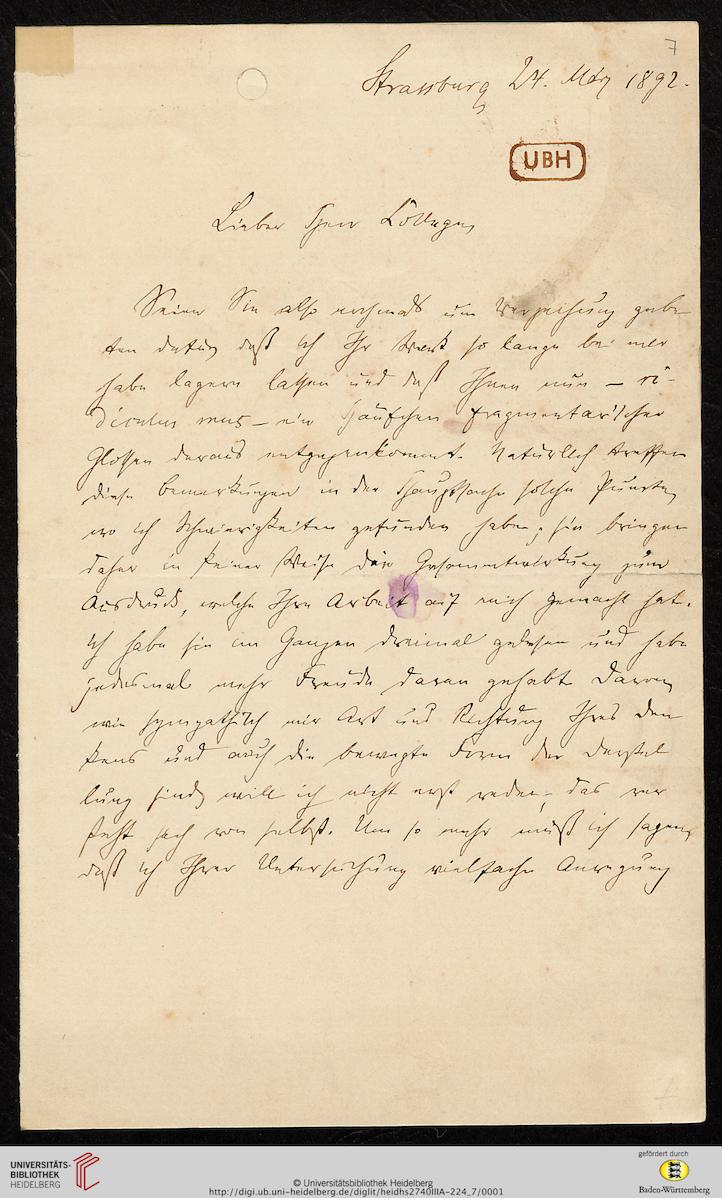 7
Strassburg 24. März 1892.
UBH
Lieber Herr College,
Seien Sie also nochmals um Verzeihung gebe-
ten dafür, daß ich Ihr Werk so lange bei mir
habe lagern lassen und daß Ihnen nun — ri-
diculus mus — ein Häufchen fragmentarischer
Glossen daraus entgegenkommt. Natürlich treffen
diese Bemerkungen in der Hauptsache solche Punkte,
wo ich Schwierigkeiten gefunden habe; sie bringen
daher in keiner Weise die Gesammtwirkung zum
Ausdruck, welche Ihre Arbeit auf mich gemacht hat.
Ich habe sie im Ganzen dreimal gelesen und habe
jedesmal mehr Freude daran gehabt. Davon,
wie sympathisch mir Art und Richtung Ihres Den
kens und auch die bewegte Form der Darstel
lung sind, will ich nicht erst reden; das ver
steht sich von selbst. Um so mehr muß ich sagen,
daß ich Ihrer Untersuchung vielfache Anregung
UNIVERSITÄTS-
BIBLIOTHEK
HEIDELBERG
© Universitätsbibliothek Heidelberg
http://digi.ub.uni-heidelberg.de/diglit/heidhs2740IIIA-224_7/0001
gefördert durch
Baden-Württemberg